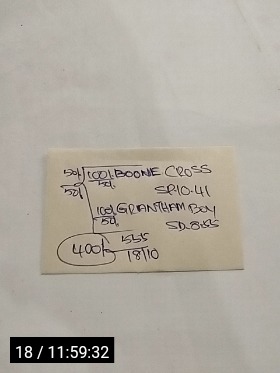 50/ 100/. BOONE CROSS
50/ 50/.
SP.10-41
100/. GRANTHAM BOY
50/.
SD.8-55
400/- 555
18/10
18 / 11:59:32